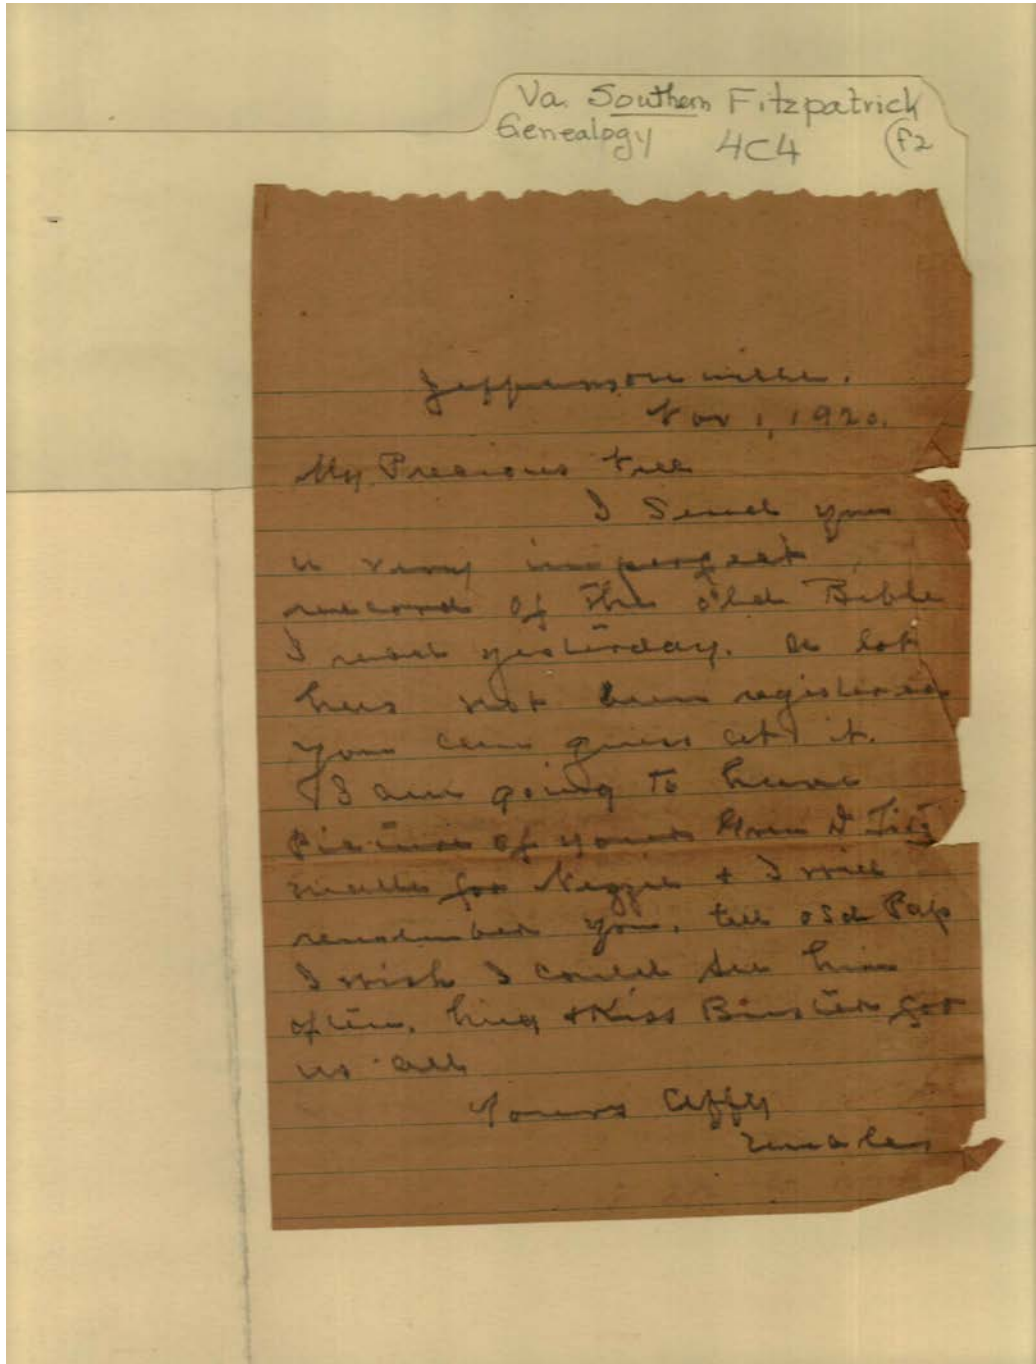 Va. Southern Fitzpatrick
Genealogy 4C4 (F2
Jeffersonville.
Nov 1, 1920.
My Precious
I Send you
a very imperfect
record of the old Bible
I read yesterday. A lot
has not been registered
you can guess at it.
I am going to have
picture of your
made for & I will
remember you, tell old Pap
I wish I could see him
often, hug & Kiss for
us all
Yours Affly